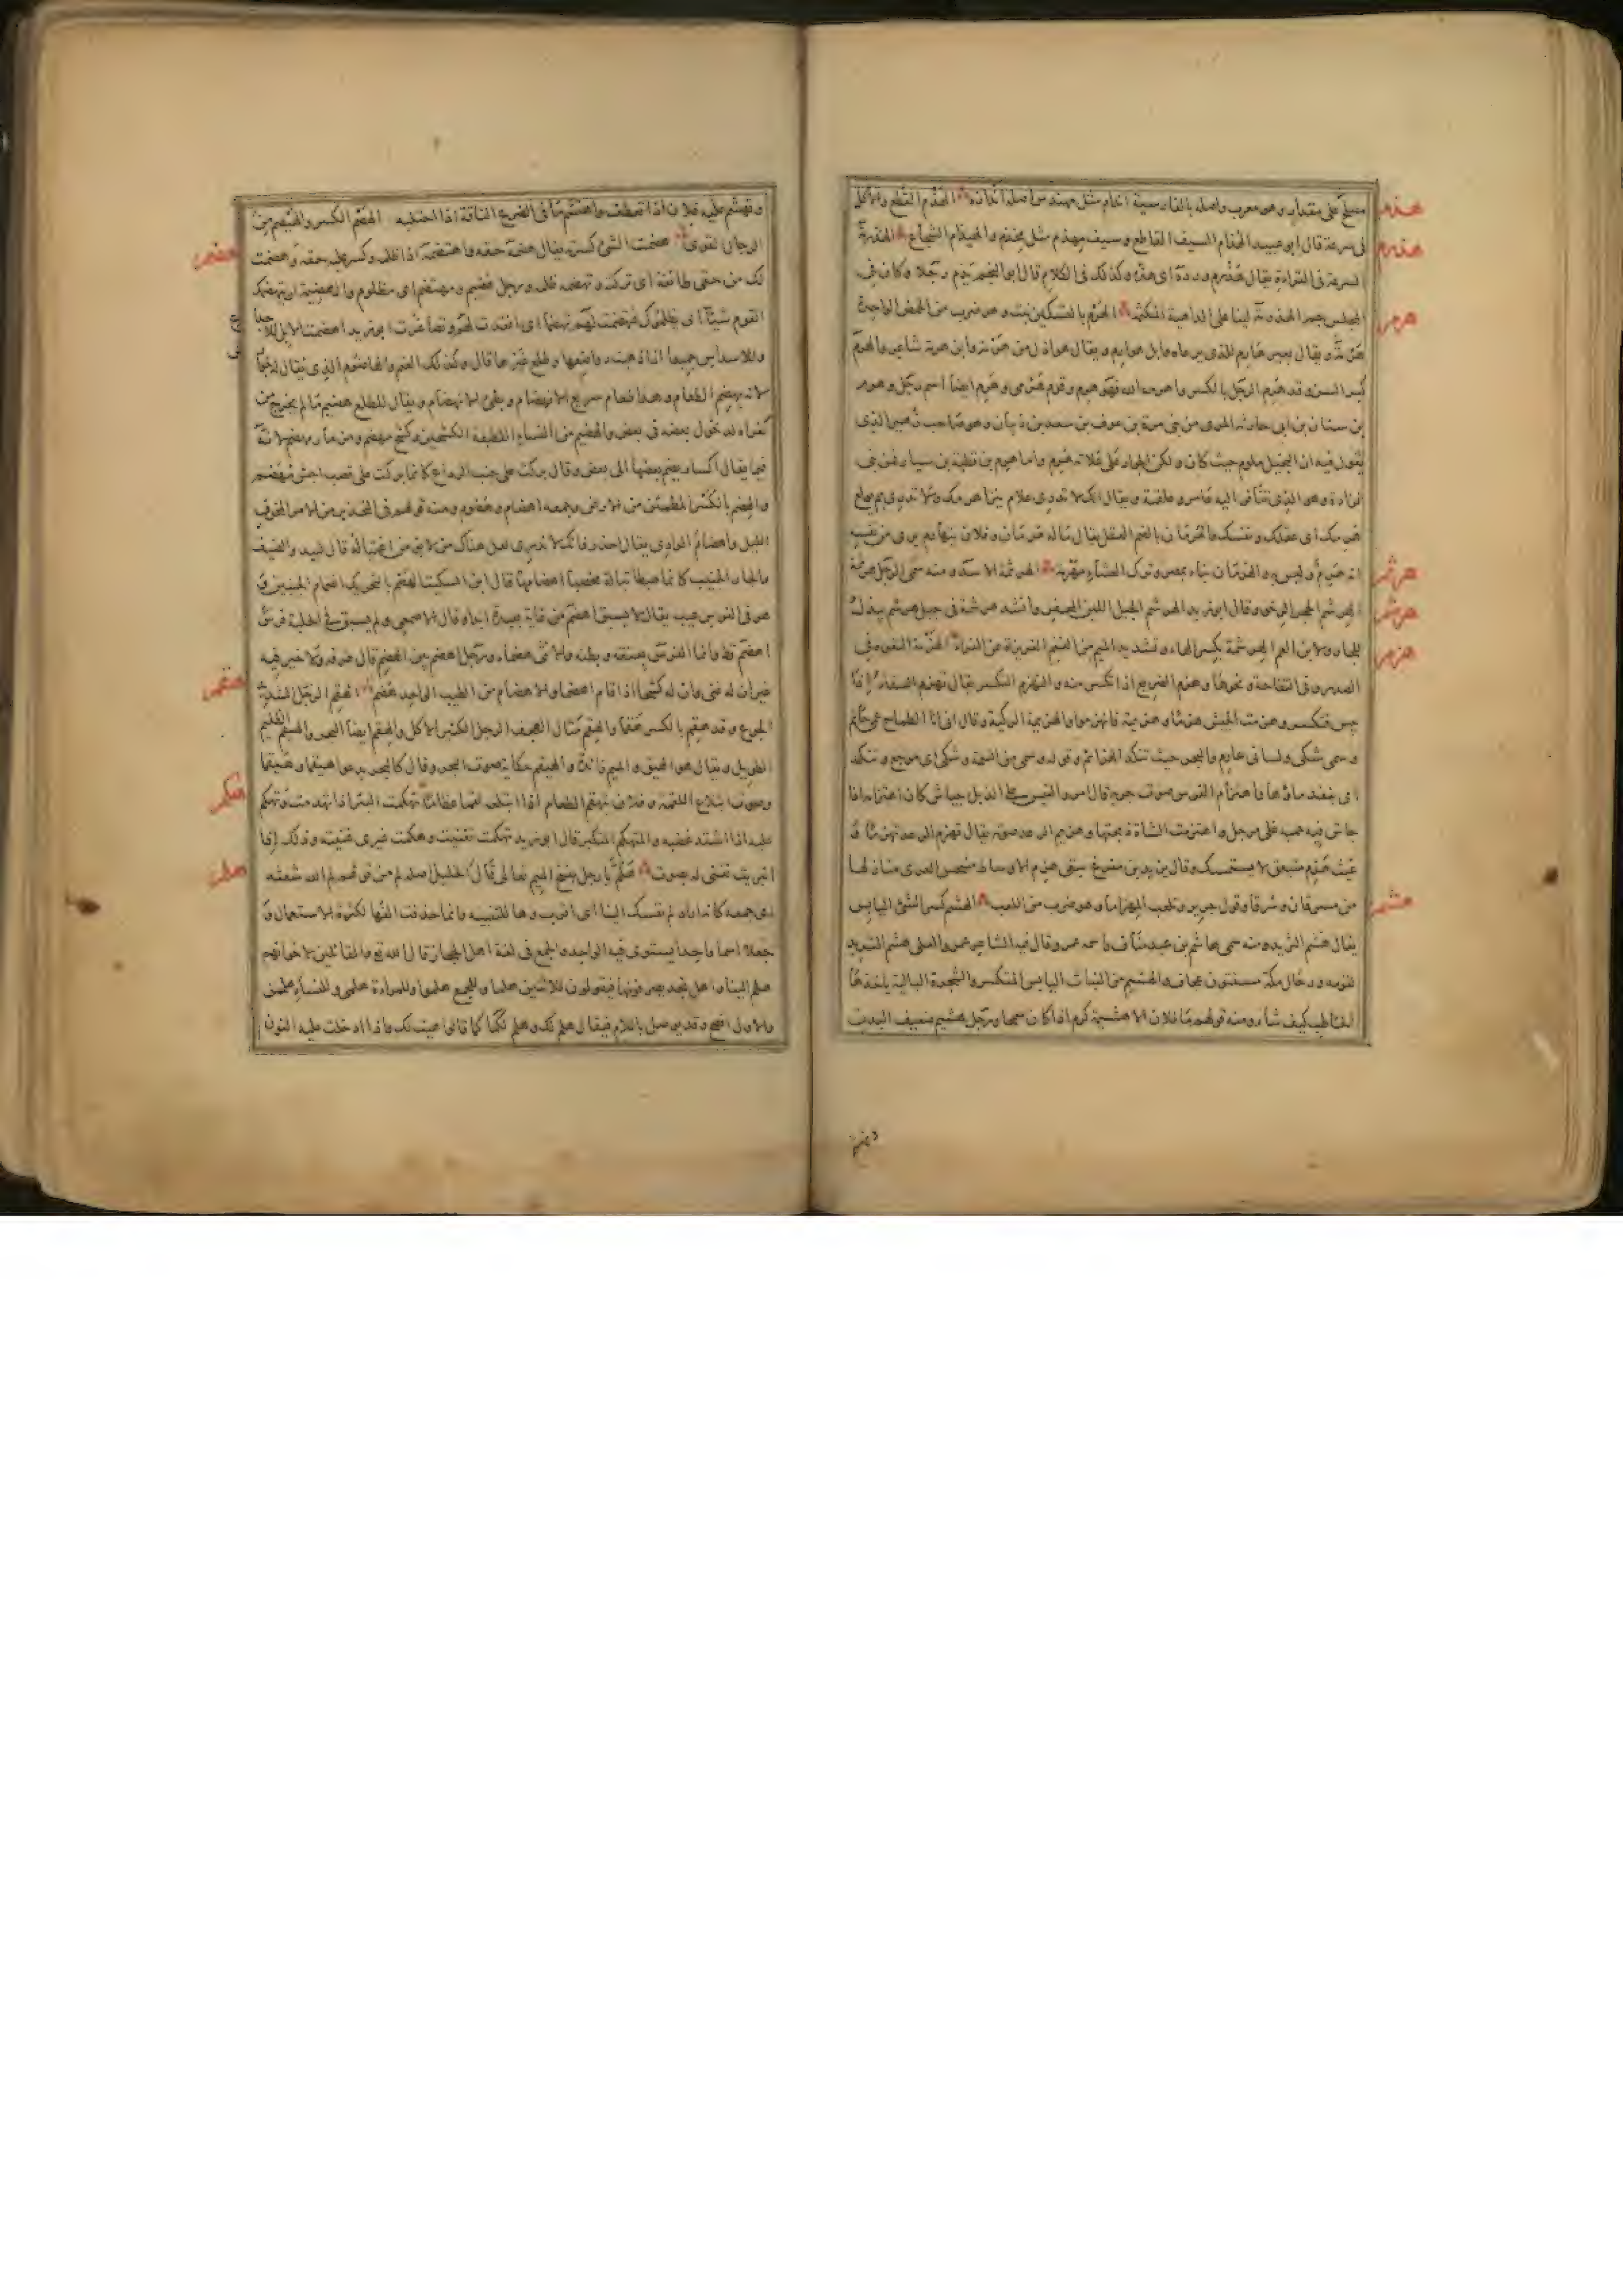 مصلح على مقدار وهو معرب واصله بالفارسية اندام مثل مهندس اصله اندازه الهذم القطع والاكل
في سرعة قال ابو عبيد الهذام السيف القاطع وسيف مهذم مثل مخذم والهيذام الشجاع الهذرمة
السرعة في القراءة يقال هذرم ورده اى هذه وكذلك في الكلام قال ابو النجم يذم رجلا وكان في
المجلس جم الهذرمة ليثا على الداهية المكتمة الهرم بالتسكين نبت وهو ضرب من الحمض الواحدة
هرمة ويقال بعير هارم للذى يرعاه وابل هوارم ويقال هو اذل من هرمة وابن هرمة شاعر والهرم
كبر السن وقد هرم الرجل بالكسر واهرمه الله فهو هرم وقوم هرمى وهرم ايضا اسم رجل وهو هرم
بن سنان بن ابى حارثة المرى من بنى مرة بن عوف بن سعد بن ذبيان وهو صاحب زهير الذى
يقول فيه ان البخيل ملوم حيث كان ولكن الجواد على علاته هرم واما هرم بن قطبة بن سيار فمن بنى
فزارة وهو الذى تنافر اليه عامر وعلقمة ويقال انك لا تدرى علام ينزأ هرمك ولا تدرى بم يولع
هرمك اى عقلك ونفسك والهرمان بالضم العقل يقال ما له هرمان وفلان يتهارم يرى من نفسه
انه هرم وليس به والهرمان بناء بمصر وترك العشاء مهرمة الهرثمة الاسد ومنه سمى الرجل هرثمة
الهرشم الحجر الرخو وقال ابو زيد الهرشم الجبل اللين المحفر وانشد هرشمة في جبل هرشم يبذل
للجار ولابن العم الهرشمة بكسر الهاء وتشديد الميم من الغنم الغزيرة عن الفراء الهزمة النقرة في
الصدر وفى التفاحة ونحوها وهزم الضريع اذا تكسر منه والتهزم التكسر يقال تهزم السقاء اذا
يبس فتكسر وهزمت الجيش هزما وهزيمة فانهزموا والهزيمة الركية وقال انى انا الطماح عمى حاتم
وسمى شكى ولسانى عارم والبحر حيث تنكد الهزائم وقوله وسمى من السمة وشكى اى موجع وتنكد
اى ينفد ماؤها واهتزام الفرس صوت جريه قال امرؤ القيس على الذبل جياش كان اهتزامه اذا
جاش فيه حميه غلى مرجل واهتزمت الشاة ذبحتها وهزيم الرعد صوته يقال تهزم الرعد تهزما و
غيث هزم متبعق لا يستمسك وقال يزيد بن مفرغ سقى هزم الاوساط منبجس العرى منازلها
من مسرقان وشرقا وقول جرير وتلعب المهزاما وهو ضرب من اللعب الهشم كسر الشئ اليابس
يقال هشم الثريد ومنه سمى هاشم بن عبد مناف واسمه عمرو وقال فيه الشاعر عمرو العلى هشم الثريد
لقومه ورجال مكة مسنتون عجاف والهشيم من النبات اليابس المتكسر والشجرة البالية ياخذها
الحاطب كيف شاء ومنه قولهم ما فلان الا هشيمة كرم اذا كان سمحا ورجل هشيم ضعيف البدن
هذم
هذرم
هرم
هرثم
هرشم
هزم
هشم
وتهشم عليه فلان اذا تعطف واهتشم ما في الضرع الناقة اذا احتلبه الهصم الكسر والهيصم من
الرجال القوى هضمت الشئ كسرته يقال هضمه حقه واهتضمه اذا ظلمه وكسر عليه حقه وهضمت
لك من حقى طائفة اى تركته وتهضمه ظلمه ورجل هضيم ومهتضم اى مظلوم والهضيمة ان يتهضمك
القوم شيئا اى يظلموك
لانه يهضم الطعام وهذا طعام سريع الانهضام وبطئ الانهضام ويقال للطلع هضيم ما لم يخرج من
كفراه لدخول بعضه في بعض والهضيم من النساء اللطيفة الكشحين وكشح مهضم ومزمار مهضم لانه
فيما يقال اكسار يضم بعضها الى بعض وقال بركت على جنب الرداع كانما بركت على قصب اجش مهضم
والهضم بالكسر المطمئن من الارض وجمعه اهضام وهضوم ومنه قولهم في التحذير من الامر المخوف
الليل واهضام الوادى يقال احذر فانك لا تدرى لعل هناك من لا يؤمن اغتياله قال لبيد والضيف
والجار الجنيب كانما هبطا تبالة مخصبا اهضامها قال ابن السكيت الهضم بالتحريك انضمام الجنبين و
هو في الفرس عيب يقال لا يسبق اهضم من غاية بعيدة ابدا وقال الاصمعى ولم يسبق في الحلبة فرس
اهضم قط وانما الفرس بعنقه وبطنه والانثى هضماء ورجل اهضم بين الهضم قال طرفة ولا خير فيه
غير ان له غنى وان له كشحا اذا قام اهضما والاهضام من الطيب الواحد هضم الهقم الرجل الشديد
الجوع وقد هقم بالكسر هقما والهقم مثال الهجف الرجل الكثير الاكل والهيقم ايضا البحر والهيقم الظليم
الطويل ويقال هو الهيق والميم زائدة والهيقم حكاية صوت البحر وقال كالبحر يدعو هيقما وهيقما
وصوت ابتلاع اللقمة وفلان يتهقم الطعام اذا ابتلعه لقما عظاما تهكمت البئر اذا تهدمت وتهكم
عليه اذا اشتد غضبه والمتهكم المتكبر قال ابو زيد تهكمت تغنيت وهكمت غيرى غنيته وذلك اذا
انبريت تغنى له بصوت هلم يا رجل بفتح الميم تعالى قال الخليل اصله لم من قولهم لم الله شعثه
اى جمعه كانه اراد لم نفسك الينا اى اقرب وها للتنبيه وانما حذفت الفها لكثرة الاستعمال و
جعلا اسما واحدا يستوى فيه الواحد والجمع في لغة اهل الحجاز قال الله تع والقائلين لاخوانهم
هلم الينا واهل نجد يصرفونها فيقولون للاثنين هلما وللجمع هلموا وللمراءة هلمى وللنساء هلممن
والاول افصح وقد يوصل باللام فيقال هلم لك وهلم لكما كما قالوا هيت لك واذا ادخلت عليه النون
هضم
هقم
هكم
هلم